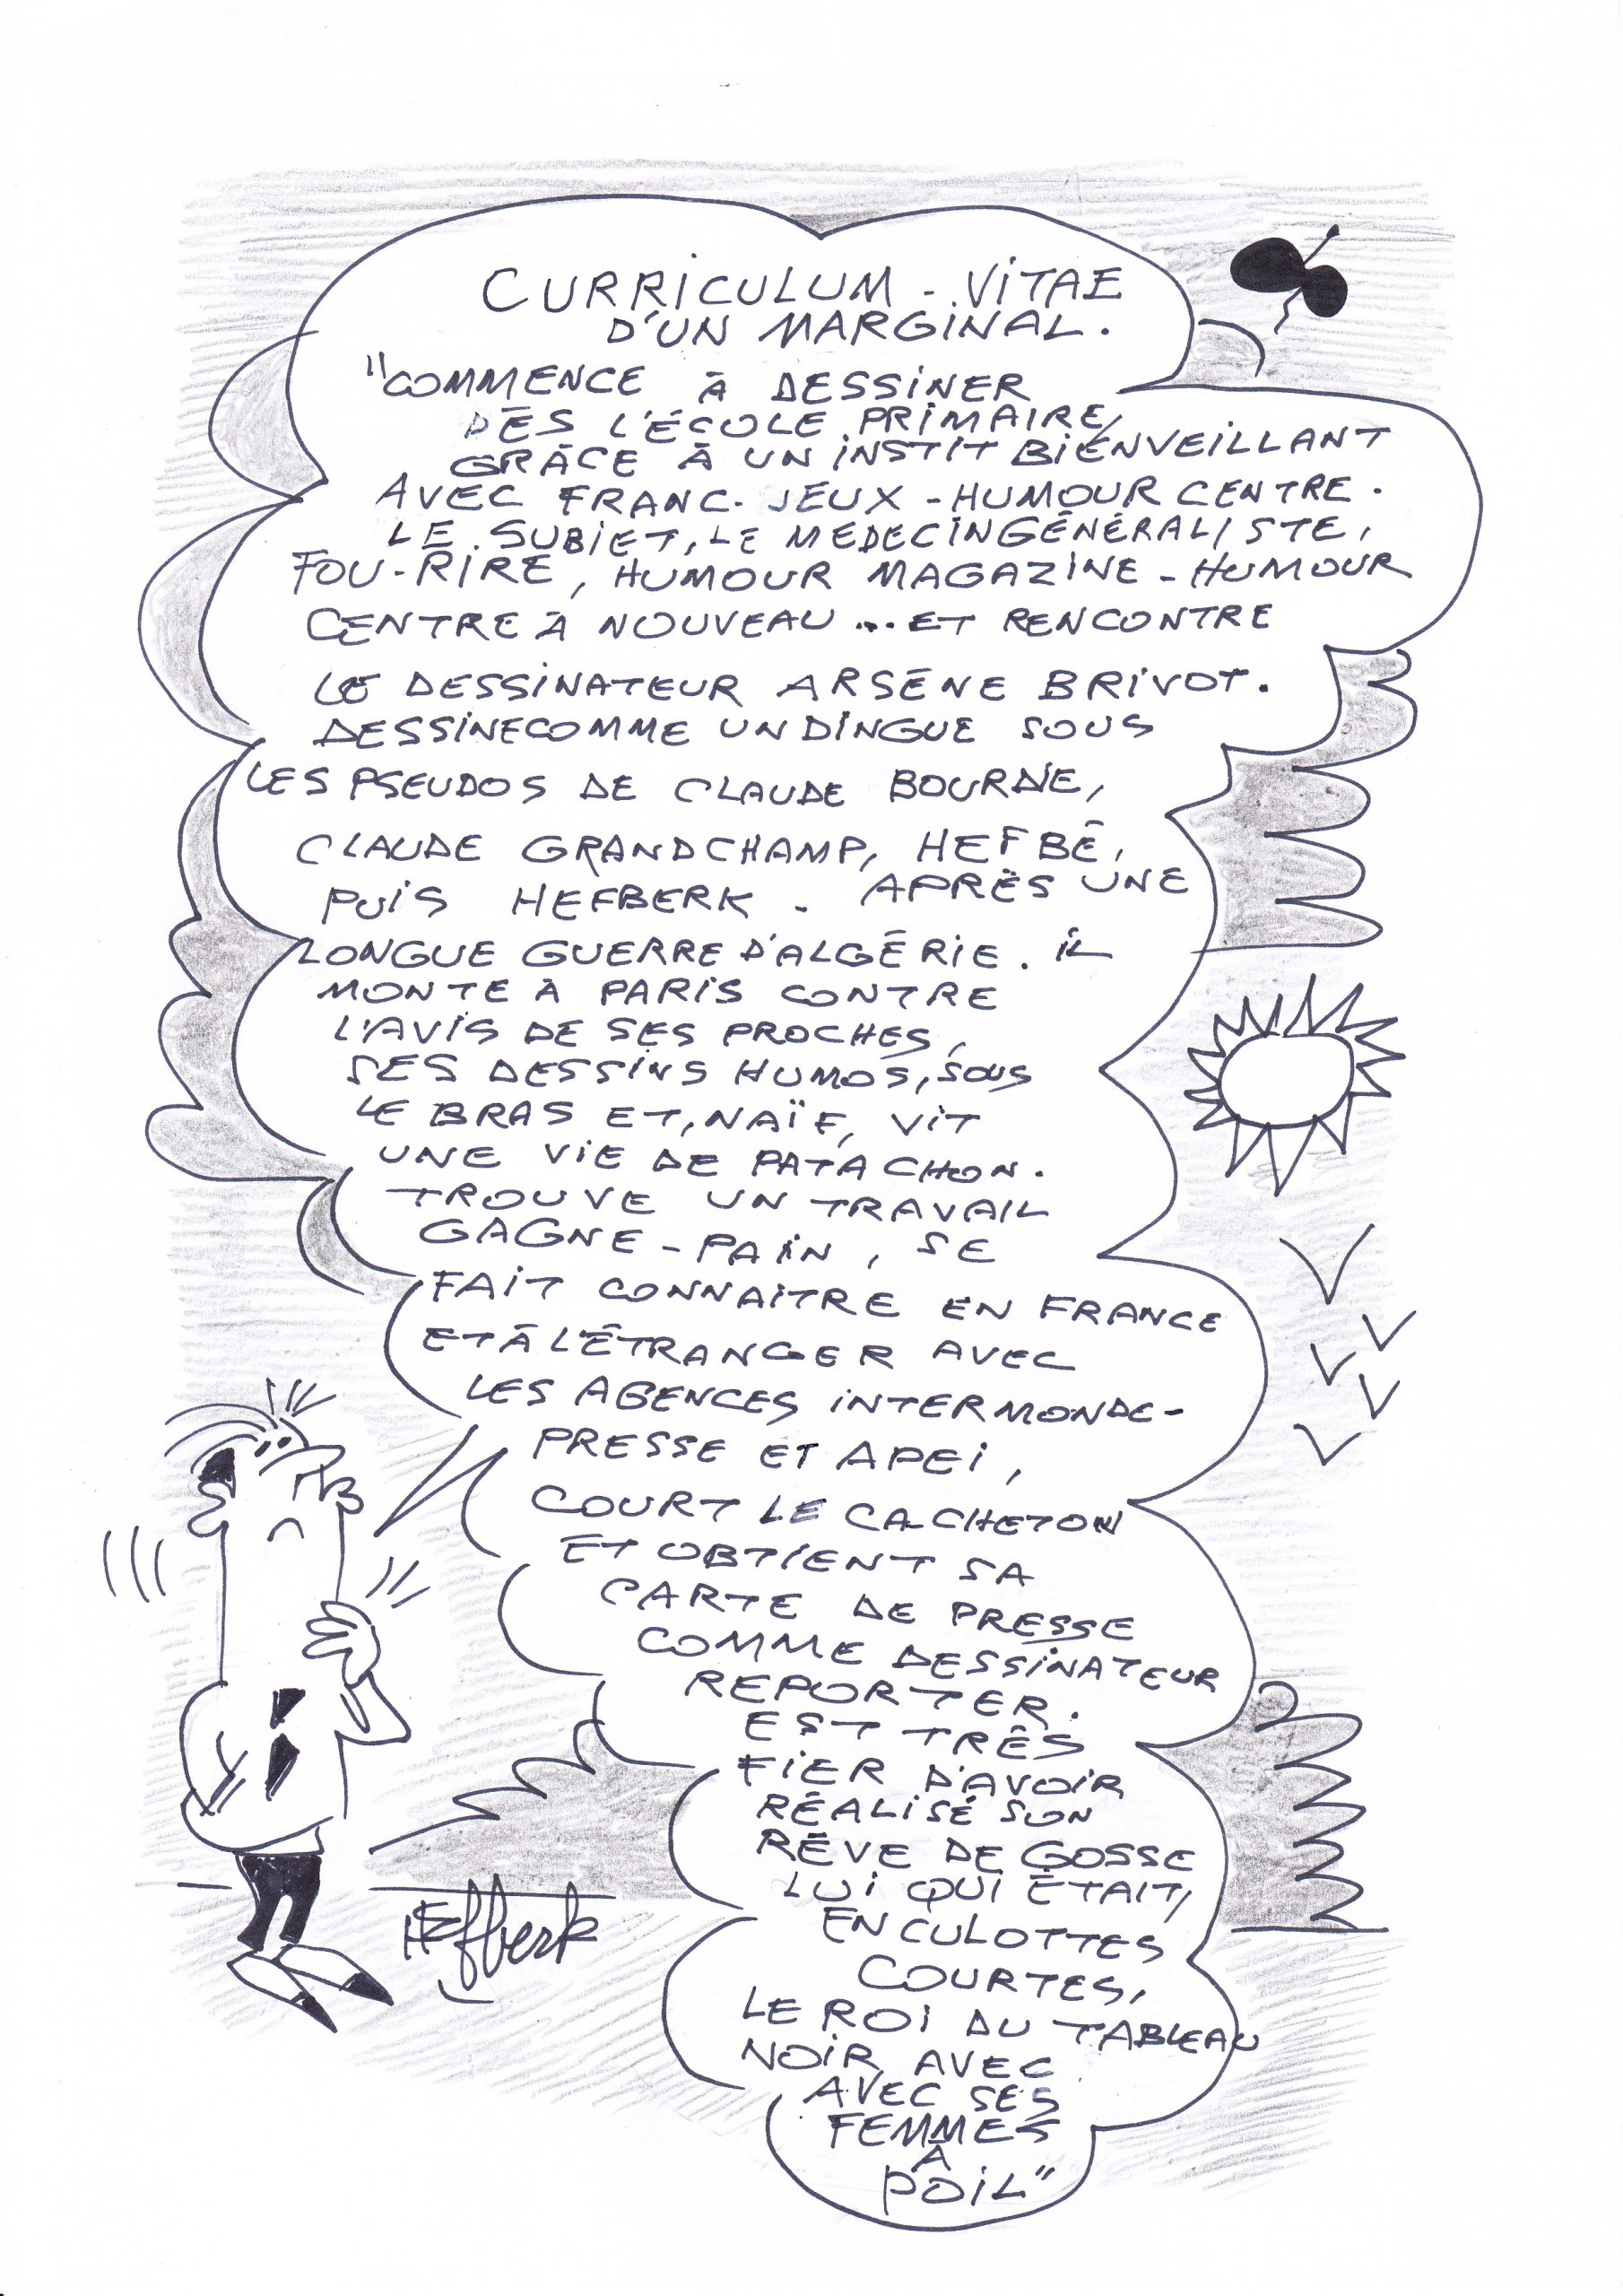 CURRICULUM - VITAE
D'UN MARGINAL.
"COMMENCE À DESSINER
DÈS L'ÉCOLE PRIMAIRE,
GRÂCE À UN INSTIT BIENVEILLANT
AVEC FRANC-JEUX - HUMOUR CENTRE.
LE SUBIET, LE MEDECIN GÉNÉRALISTE,
FOU-RIRE, HUMOUR MAGAZINE - HUMOUR
CENTRE À NOUVEAU ... ET RENCONTRE
LE DESSINATEUR ARSÈNE BRIVOT.
DESSINE COMME UN DINGUE SOUS
LES PSEUDOS DE CLAUDE BOURDIE,
CLAUDE GRANDCHAMP, HEFBÉ,
PUIS HEFBERK - APRÈS UNE
LONGUE GUERRE D'ALGÉRIE. IL
MONTE À PARIS CONTRE
L'AVIS DE SES PROCHES,
SES DESSINS HUMOS, SOUS
LE BRAS ET, NAÏF, VIT
UNE VIE DE PATACHON.
TROUVE UN TRAVAIL
GAGNE-PAIN, SE
FAIT CONNAITRE EN FRANCE
ET À L'ÉTRANGER AVEC
LES AGENCES INTERMONDE-
PRESSE ET APEI,
COURT LE CACHETON
ET OBTIENT SA
CARTE DE PRESSE
COMME DESSINATEUR
REPORTER.
EST TRÈS
FIER D'AVOIR
RÉALISÉ SON
RÊVE DE GOSSE
LUI QUI ÉTAIT,
EN CULOTTES
COURTES,
LE ROI DU TABLEAU
NOIR AVEC
AVEC SES
FEMMES
À
POIL"
HEfberk